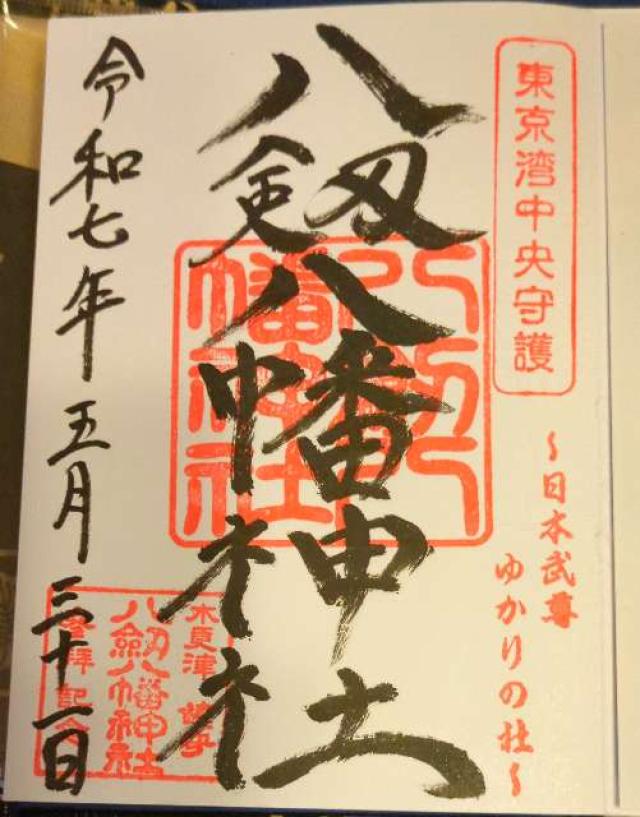 東京湾中央守護
～日本武尊
ゆかりの社～
八剱八幡神社
八剱八幡神社
木更津
八劔八幡神社
参拝記念
令和七年五月三十一日